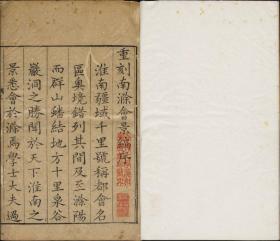 重刻南滁會景編序
淮南疆域千里號稱都會名
區奧境錯列其間及至滁陽
而群山盤結地方十里泉谷
巖洞之勝聞於天下淮南之
景悉會於滁焉學士大夫過